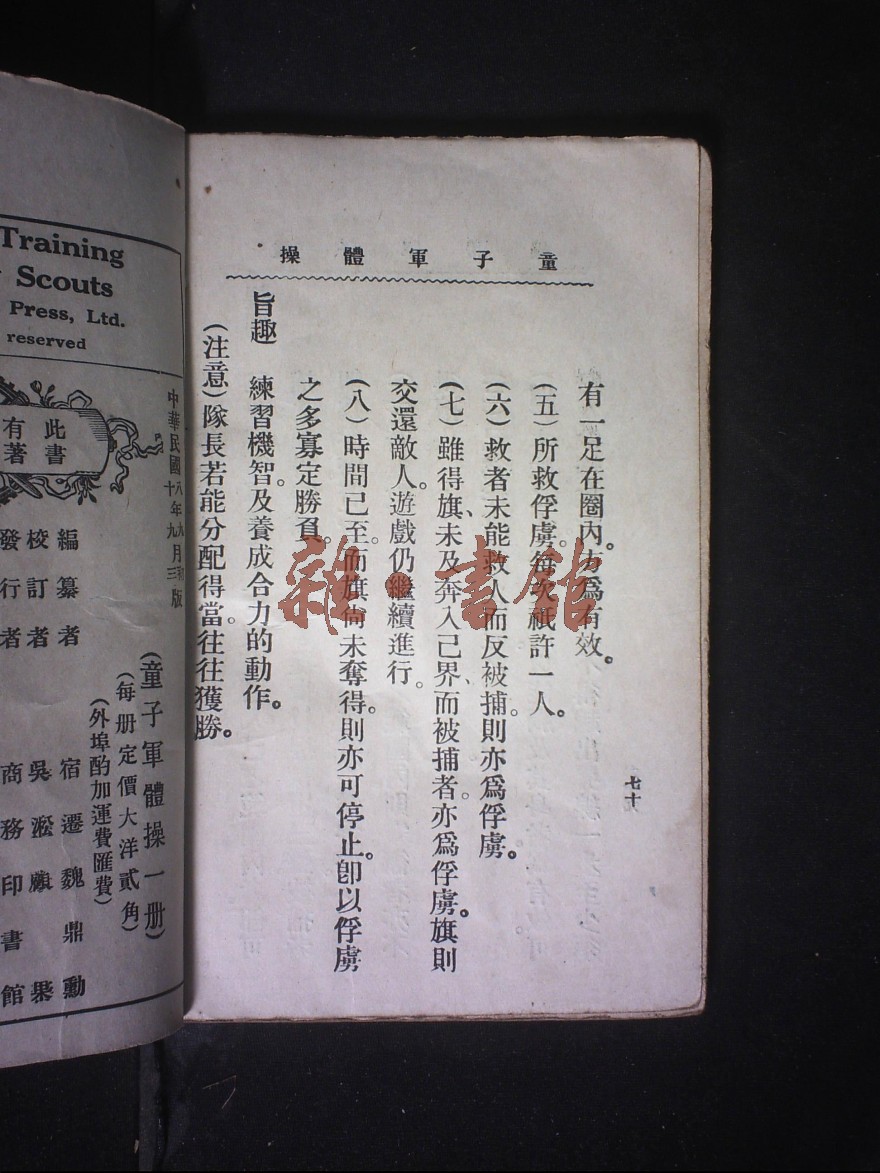 童子軍體操
七十
有一足在圈內。方爲有效。
(五)所救俘虜。每次祇許一人。
(六)救者未能救人而反被捕。則亦爲俘虜。
(七)雖得旗、未及奔入己界、而被捕者。亦爲俘虜。旗則
交還敵人。遊戲仍繼續進行。
(八)時間已至。而旗尚未奪得。則亦可停止。卽以俘虜
之多寡定勝負。
旨趣 練習機智。及養成合力的動作。
(注意)隊長若能分配得當。往往獲勝。
Training
Scouts
Press, Ltd.
reserved
此書
有著
中華民國八年九月初版
十九 三
(童子軍體操一册)
(每册定價大洋貳角)
(外埠酌加運費匯費)
編纂者 宿遷魏鼎勳
校訂者 吳淞
發行者 商務印書館
雜·書館